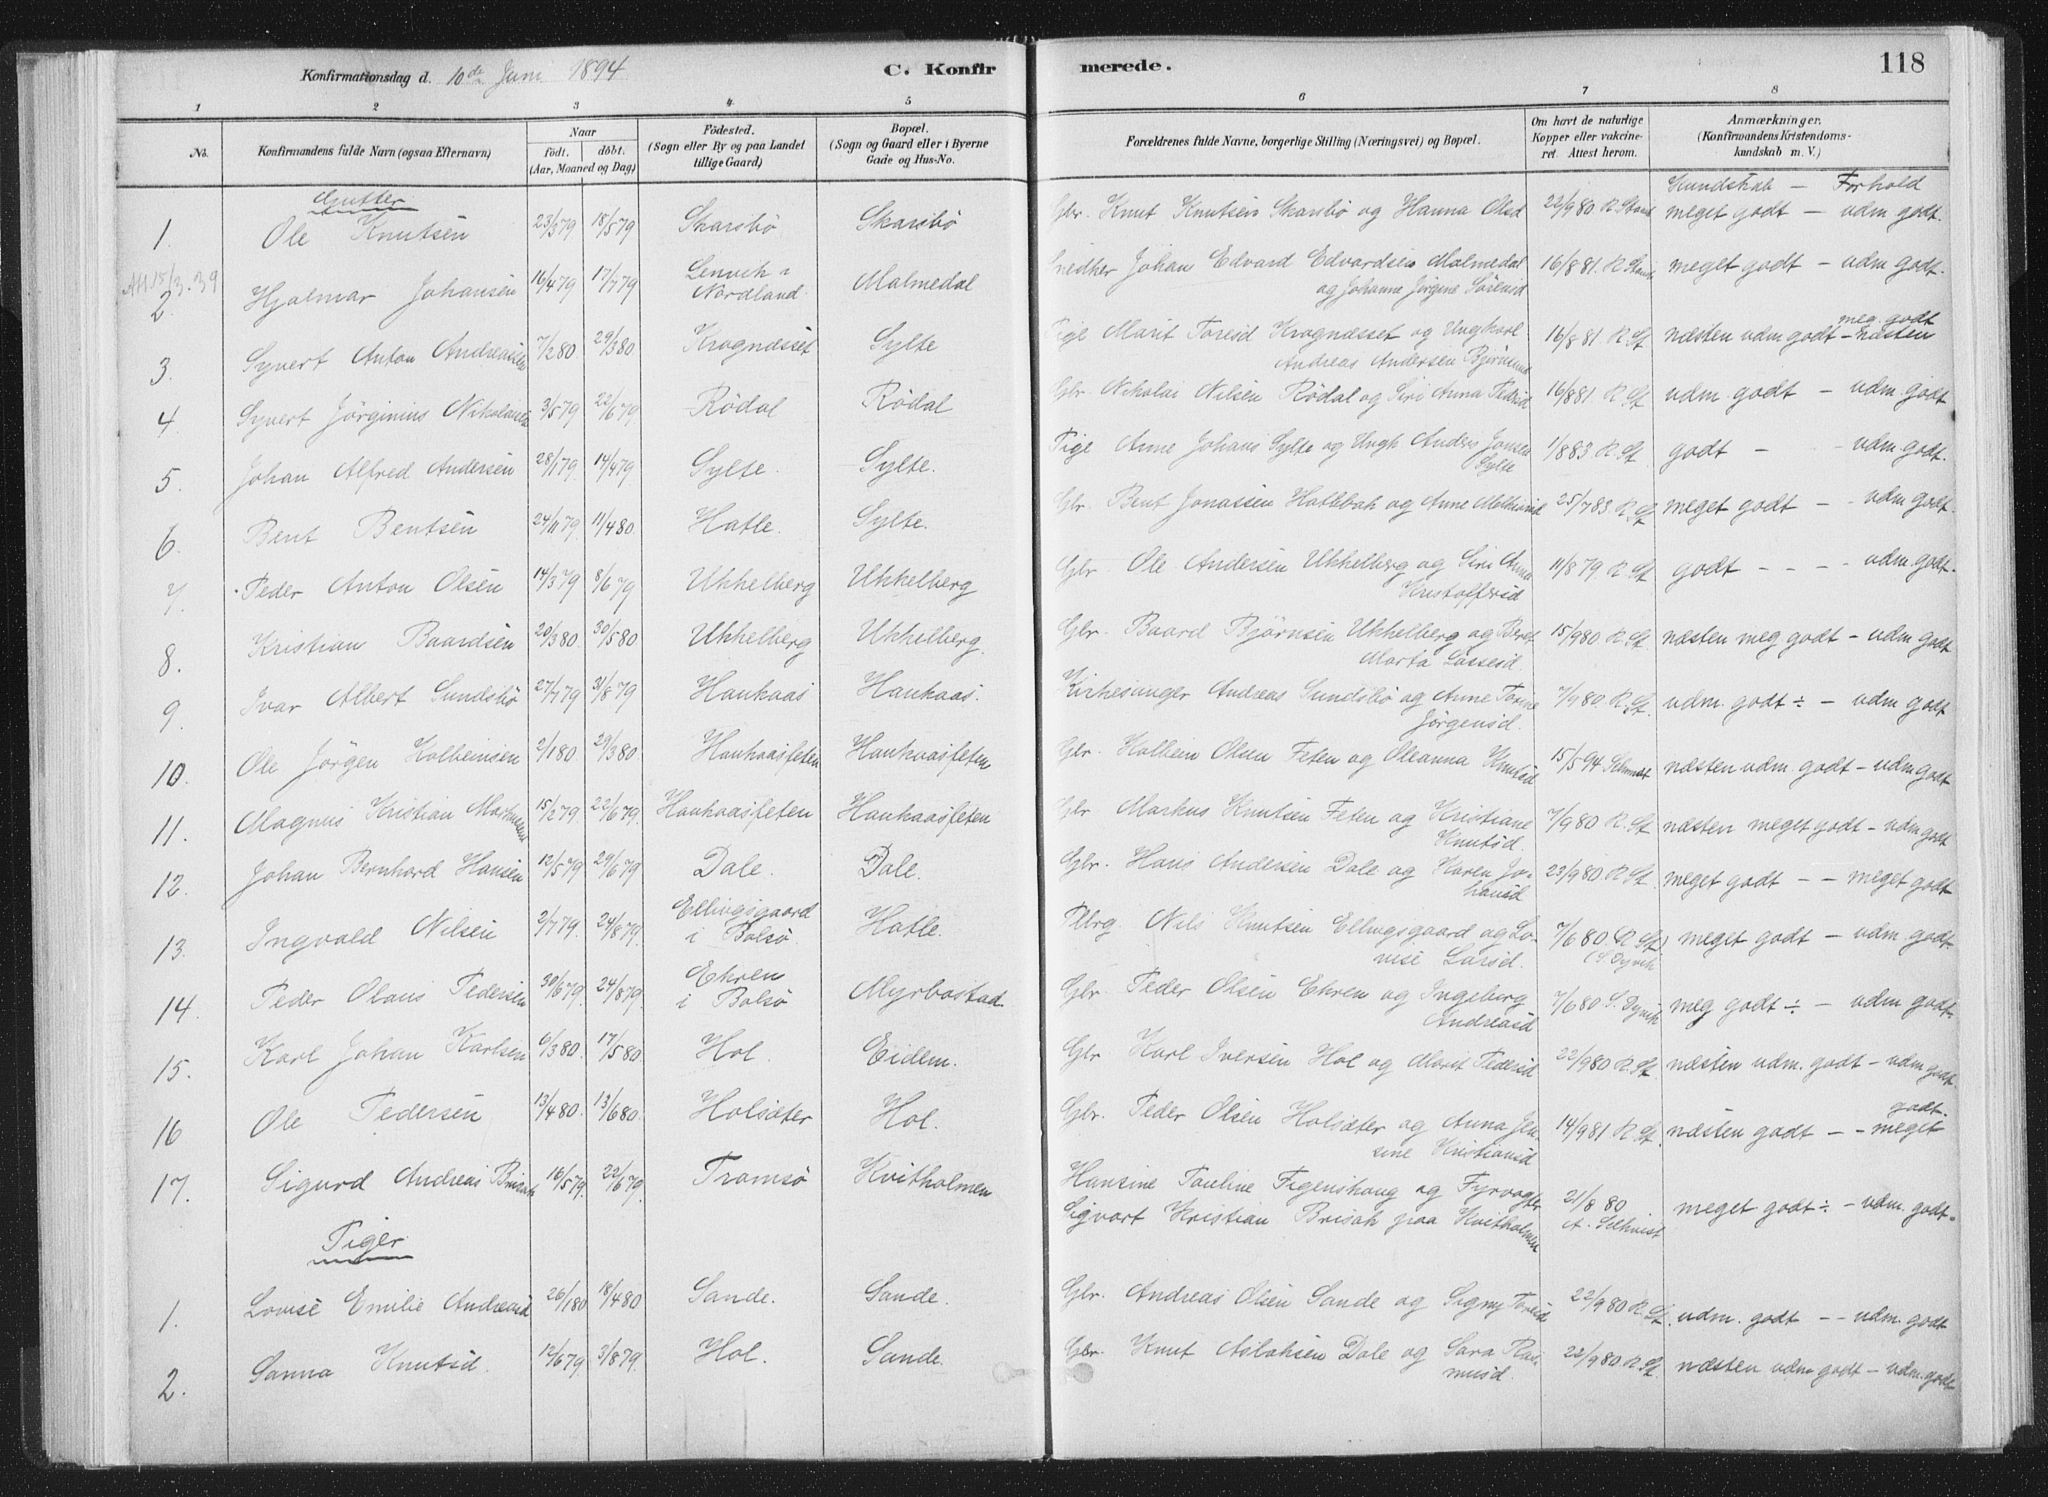 Konfirmationsdag d. 10de Juni 1894 C. Konfirmerede. 118
1 2 3 4 5 6 7 8
No. Konfirmandens fulde Navn (ogsaa Efternavn) Naar födt. döbt. (Aar, Maaned og Dag) Födested. (Sogn eller By og paa Landet tillige Gaard) Bopæl. (Sogn og Gaard eller i Byerne Gade og Hus-No. Forældrenes fulde Navne, borgerlige Stilling (Næringsvei) og Bopæl. Om havt de naturlige Kopper eller vakcineret. Attest herom. Anmærkninger. (Konfirmandens Kristendomskundskab m. V.)
Gutter Kundskab — Forhold
1. Ole Knutsen 23/3 79 18/5 79 Skarsbö Skarsbö Gbr. Knut Knutsen Skarsbö og Hanna Olsd 22/9 80 R. meget godt — udm godt.
Att. 15/3.39
2. Hjalmar Johansen 16/4 79 17/7 79 Lenvik i Nordland. Malmedal Snedker Johan Edvard Edvardsen Malmedal og Johanne Jörgine Sörensd 16/8 81. R. meget godt — udm godt.
3. Syvert Anton Andreassen 7/2 80 29/3 80 Krognæsset Sylte Pige Marit Toresd Krognæsset og Ungkarl Andreas Andersen Björnsund 16/8 81 R. St næsten udm godt — næsten meg. godt
4. Syvert Jörginius Nikolaisen 3/5 79 22/6 79 Rödal Rödal Gbr. Nikolai Nilsen Rödal og Siri Anna Pedersd 16/8 81 R. St udm. godt — udm. godt
5. Johan Alfred Andersen 28/1 79 14/4 79 Sylte. Sylte. Pige Anne Johans Sylte og Ungk Anders Jonsen Sylte 1/8 83 R. St. godt — udm. godt.
6. Bent Bentsen 24/11 79 11/4 80 Hatle. Sylte. Gbr. Bent Jonassen Hatlebak og Anne 25/7 83 R. St. meget godt — udm godt.
7. Peder Anton Olsen 14/3 79 8/6 79 Ukkelberg Ukkelberg Gbr. Ole Andersen Ukkelberg og Siri Anna Kristoffersd 11/8 79 R. St. godt — — — udm. godt.
8. Kristian Baardsen 20/3 80. 30/5 80 Ukkelberg Ukkelberg. Gbr. Baard Björnsen Ukkelberg og Beret Marta Lassesd. 15/9 80 R. St. næsten meg godt — udm. godt
9. Ivar Albert Sundsbö 27/7 79 31/8 79 Haukaas Haukaas. Kirkesanger Andreas Sundsbö og Anne Torine Jörgensd. 7/9 80. R. St. udm. godt ÷ — udm godt
10. Ole Jörgen Kolbeinsen 2/1 80 29/3 80 Haukaasfeten Haukaasfeten Gbr. Kolbein Olsen Feten og Oleanna Knutsd 15/5 94 næsten udm. godt — udm godt
11. Magnus Kristian Markussen 15/2 79. 22/6 79. Haukaasfeten Haukaasfeten Gbr Markus Knutsen Feten og Kristiane Knutsd. 7/9 80 R. St. næsten meget godt — udm godt
12. Johan Bernhard Hansen 12/5 79 29/6 79 Dale. Dale. Gbr. Hans Andersen Dale og Karen Johansd 23/9 80 R. St. meget godt — — meget godt
13. Ingvald Nilsen 2/7 79. 24/8 79. Ellingsgaard i Bolsö. Hatle. Nils Knutsen Ellingsgaard og Lovise Larsd. 7/6 80. (R. St) (S. Dyvik meget godt — udm. godt.
14. Peder Olaus Pedersen 30/6 79. 24/8 79. Ekren i Bolsö Myrbostad. Gbr. Peder Olsen Ekren og Ingeborg Andreasd 7/6 80 S. Dyvik meg godt ÷ — udm godt.
15. Karl Johan Karlsen 6/3 80. 17/5 80 Hol. Eidem. Gbr. Karl Iversen Hol og Marit Pedersd 22/9 80 R. St. næsten udm. godt — udm godt.
16 Ole Pedersen 13/4 80. 13/6 80. Holsæter Hol. Gbr. Peder Olsen Holsæter og Anna Jensine Kristiansd 14/9 81 R. St. næsten godt — — meget godt.
17. Sigurd Andreas Brisak 16/5 79. 22/6 79. Tromsö Kvitholmen Hansine Pauline Figenskaug og Fyrvogter Sigvart Kristian Brisak paa Kvitholmen 21/8 80 meget godt ÷ — udm. godt.
Piger
1. Lovise Emilie Andreasd 26/1 80 18/4 80 Sande. Sande. Gbr. Andreas Olsen Sande og Signy Toresd 22/9 80 R. St. udm. godt — — udm. godt
2. Sanna Knutsd. 12/6 79 3/8 79. Hol. Sande. Gbr. Knut Aslaksen Dale og Sara Rasmusd. 22/9 80 R. St. næsten udm godt — udm. godt